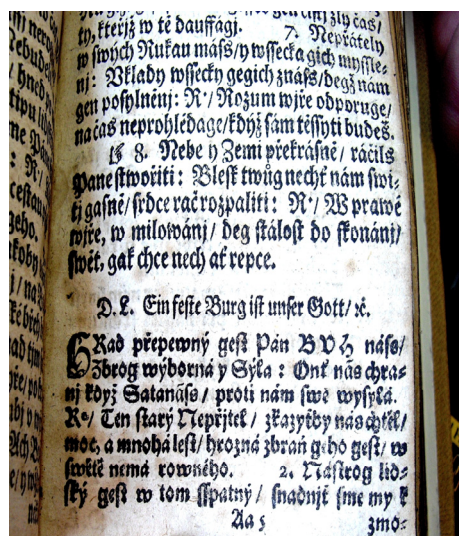 ty, kteřjž w tě dauffagj. 7. Nepřátely
w swých Rukau máss / y wssecka gich mysSle-
nj: Vklady wssecky gegich znáss / degž nám
gen posylněnj: R° / Rozum wjře odporuge /
na čas neprohlédage / když sám těssyti budeš.
8. Nebe y Zemi překrásně / ráčils
Pane stwořiti: Blesk twůg nechť nám swi-
tj gasně / srdce rač rozpaliti: R° / W prawé
wjře, w milowánj / deg stálost do skonánj /
swět, gak chce nech ať repce.
D. L. Ein feste Burg ist unser Gott / ꝛc.
HRad přepewný gest Pán BVH náss /
Zbrog wýborná y Sýla: Onť nás chra-
nj když Satanáss / proti nám swé wysýlá.
R° / Ten starý Nepřjtel / zkazyťby nás chtěl /
moc, a mnohá lest / hrozná zbraň geho gest / w
swětě nemá rowného. 2. Nástrog lid-
ský gest w tom sspatný / snadnjť sme my k
Aa 5 zmo-